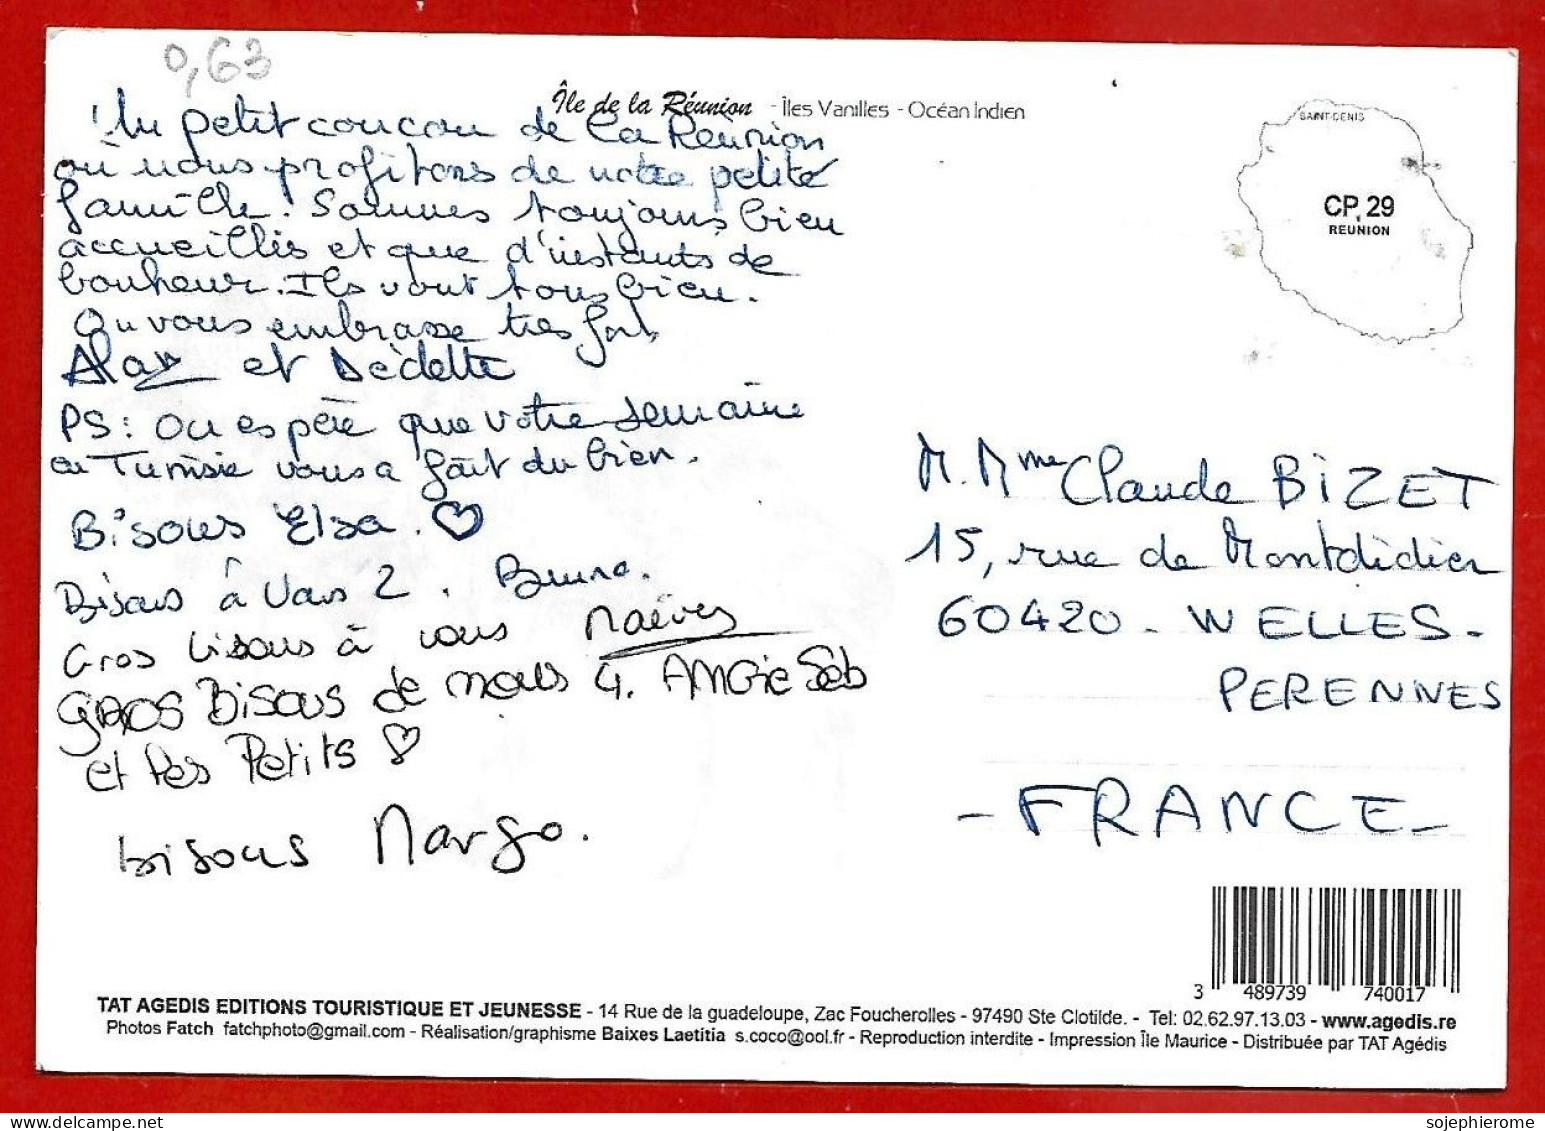 0,63
Île de la Réunion - Îles Vanilles - Océan Indien
Un petit coucou de la Réunion
où nous profitons de notre petite
famille. Sommes toujours bien
accueillis et que d'instants de
bonheur. Ils vont tous bien.
On vous embrasse très fort
Alain et Dédette
PS : On espère que votre semaine
en Tunisie vous a fait du bien.
Bisous Elsa. ♡
Bisous à Vous 2. Bruno.
Gros bisous à vous Maëva
GROS BiSOUS de nous 4. ANGie Seb
et les Petits ♡
bisous Margo.
SAINT-DENIS
CP. 29
REUNION
M. Mme Claude BiZET
15, rue de Montdidier
60420 - WELLES -
PERENNES
- FRANCE -
3 489739 740017
TAT AGEDIS EDITIONS TOURISTIQUE ET JEUNESSE - 14 Rue de la guadeloupe, Zac Foucherolles - 97490 Ste Clotilde. - Tel: 02.62.97.13.03 - www.agedis.re
Photos Fatch fatchphoto@gmail.com - Réalisation/graphisme Baixes Laetitia s.coco@ool.fr - Reproduction interdite - Impression Île Maurice - Distribuée par TAT Agédis
sojephierome